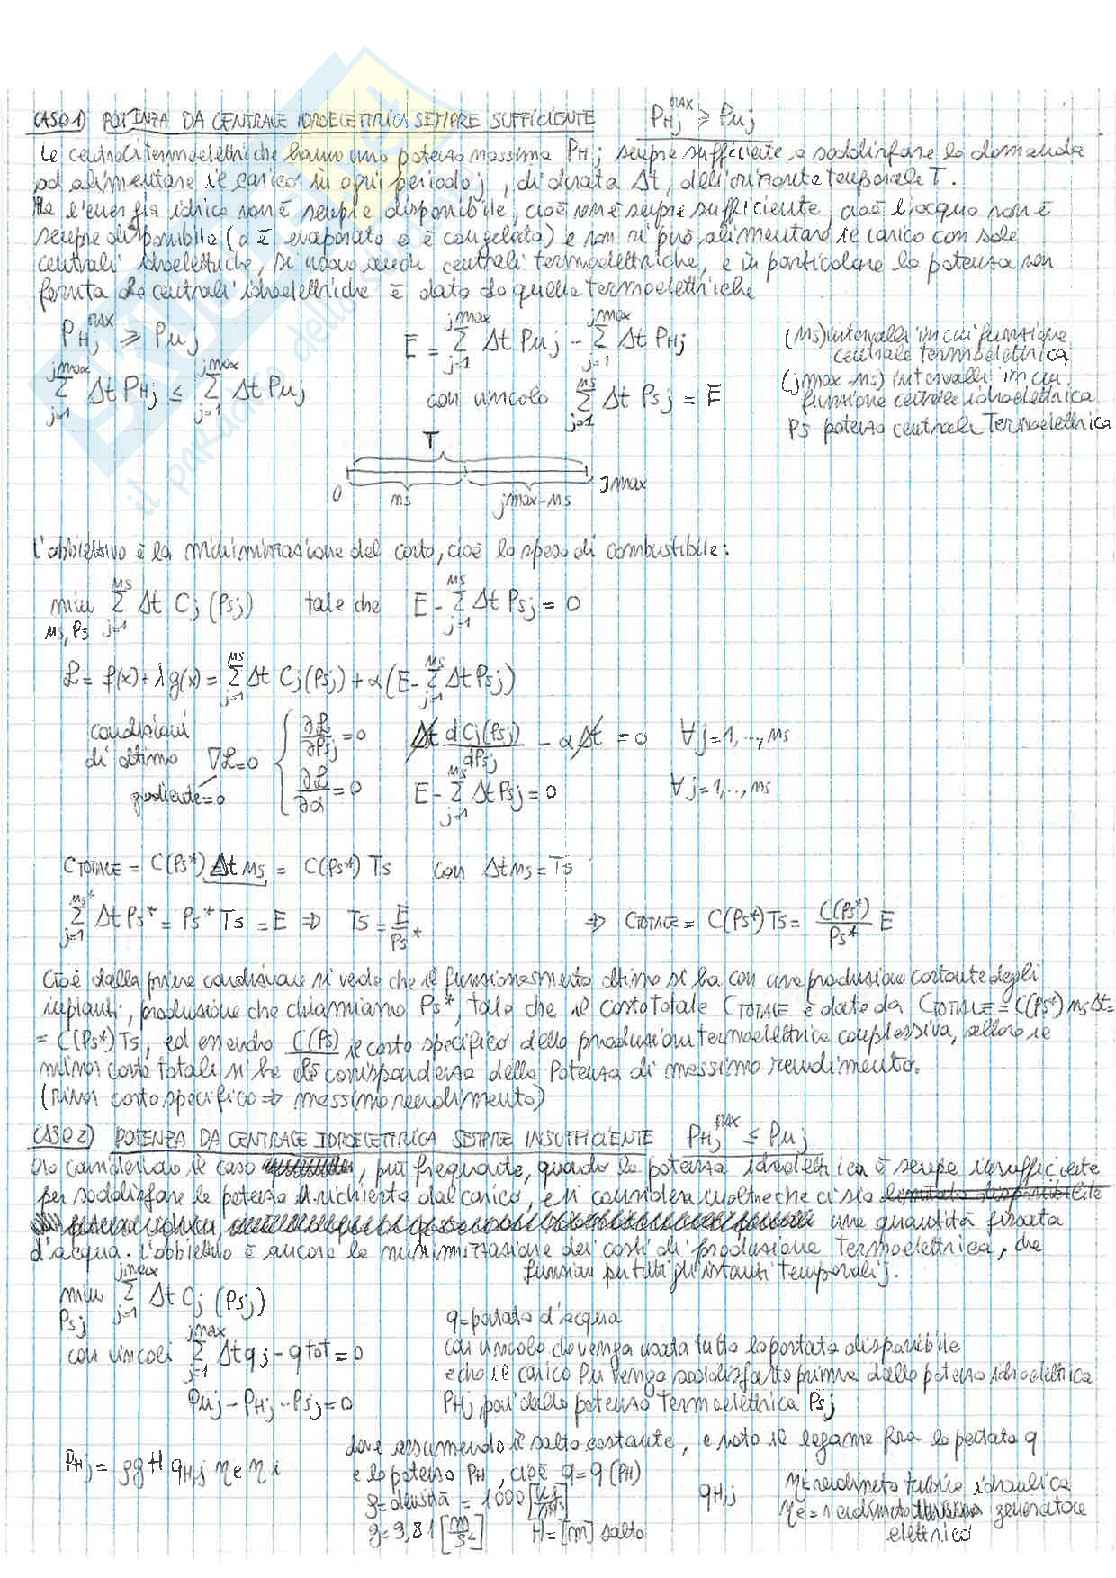 CASO 1) POTENZA DA CENTRALE IDROELETTRICA SEMPRE SUFFICIENTE P_Hj^MAX ≥ Puj
Le centrali termoelettriche hanno una potenza massima P_Hj sempre sufficiente a soddisfare la domanda
ad alimentare il carico su ogni periodo j, di durata Δt, dell'orizzonte temporale T.
Ma l'energia idrica non è sempre disponibile, cioè non è sempre sufficiente, cioè l'acqua non è
sempre disponibile (o è evaporata o è congelata) e non si può alimentare il carico con sole
centrali idroelettriche, si usano anche centrali termoelettriche, e in particolare la potenza non
fornita da centrali idroelettriche è data da quelle termoelettriche
P_Hj^MAX ≥ Puj
E = Σ_{j=1}^{jmax} Δt Puj - Σ_{j=1}^{jmax} Δt P_Hj
(ms) intervalli in cui funziona
centrale termoelettrica
Σ_{j=1}^{jmax} Δt P_Hj ≤ Σ_{j=1}^{jmax} Δt Puj
con vincolo Σ_{j=1}^{ms} Δt Psj = E
(jmax-ms) intervalli in cui
funziona centrale idroelettrica
Ps potenza centrale Termoelettrica
T
0 ms jmax-ms Jmax
L'obbiettivo è la minimizzazione del costo, cioè la spesa di combustibile:
min_{ms, Ps} Σ_{j=1}^{ms} Δt Cj (Psj) tale che E - Σ_{j=1}^{ms} Δt Psj = 0
ℒ = f(x) + λg(x) = Σ_{j=1}^{ms} Δt Cj(Psj) + α(E - Σ_{j=1}^{ms} Δt Psj)
condizioni
di ottimo ∇ℒ=0
gradiente=0
∂ℒ/∂Psj = 0 Δt dCj(Psj)/dPsj - αΔt = 0 ∀j=1,..,ms
∂ℒ/∂α = 0 E - Σ_{j=1}^{ms} Δt Psj = 0 ∀j=1,..,ms
CTOTALE = C(Ps*) Δt ms = C(Ps*) Ts con Δt ms = Ts
Σ_{j=1}^{ms*} Δt Ps* = Ps* Ts = E ⇒ Ts = E/Ps* ⇒ CTOTALE = C(Ps*) Ts = C(Ps*)/Ps* E
Cioè dalla prima condizione si vede che il funzionamento ottimo si ha con una produzione costante degli
impianti, produzione che chiamiamo Ps*, tale che il costo totale CTOTALE è dato da CTOTALE = C(Ps*) ms Δt=
= C(Ps*) Ts, ed essendo C(Ps)/Ps il costo specifico della produzione termoelettrica complessiva, allora il
minor costo totale si ha in corrispondenza della Potenza di massimo rendimento.
(minor costo specifico ⇒ massimo rendimento)
CASO 2) POTENZA DA CENTRALE IDROELETTRICA SEMPRE INSUFFICIENTE P_Hj^MAX ≤ Puj
Ora considerando il caso, più frequente, quando la potenza idroelettrica è sempre insufficiente
per soddisfare la potenza richiesta dal carico, e si considera inoltre che ci sia
una quantità fissata
d'acqua. L'obbiettivo è ancora la minimizzazione dei costi di produzione Termoelettrica, che
funziona per tutti gli istanti temporali j.
min_{Psj} Σ_{j=1}^{jmax} Δt Cj (Psj)
q=portata d'acqua
con vincoli Σ_{j=1}^{jmax} Δt qj - q^tot = 0
con vincolo che venga usata tutta la portata disponibile
e che il carico Pu venga soddisfatto prima dalla potenza idroelettrica
Puj - P_Hj - Psj = 0
P_Hj poi dalla potenza Termoelettrica Psj
P_Hj = ρgH q_Hj ηe ηi
dove assumendo il salto costante, è noto il legame fra la portata q
e la potenza P_H, cioè q = q(P_H)
ρ=densità = 1000 [kg/m³]
q_Hj
ηi=rendimento turbina idraulica
ηe=rendimento generatore
elettrico
g=9,81 [m/s²] H=[m] salto